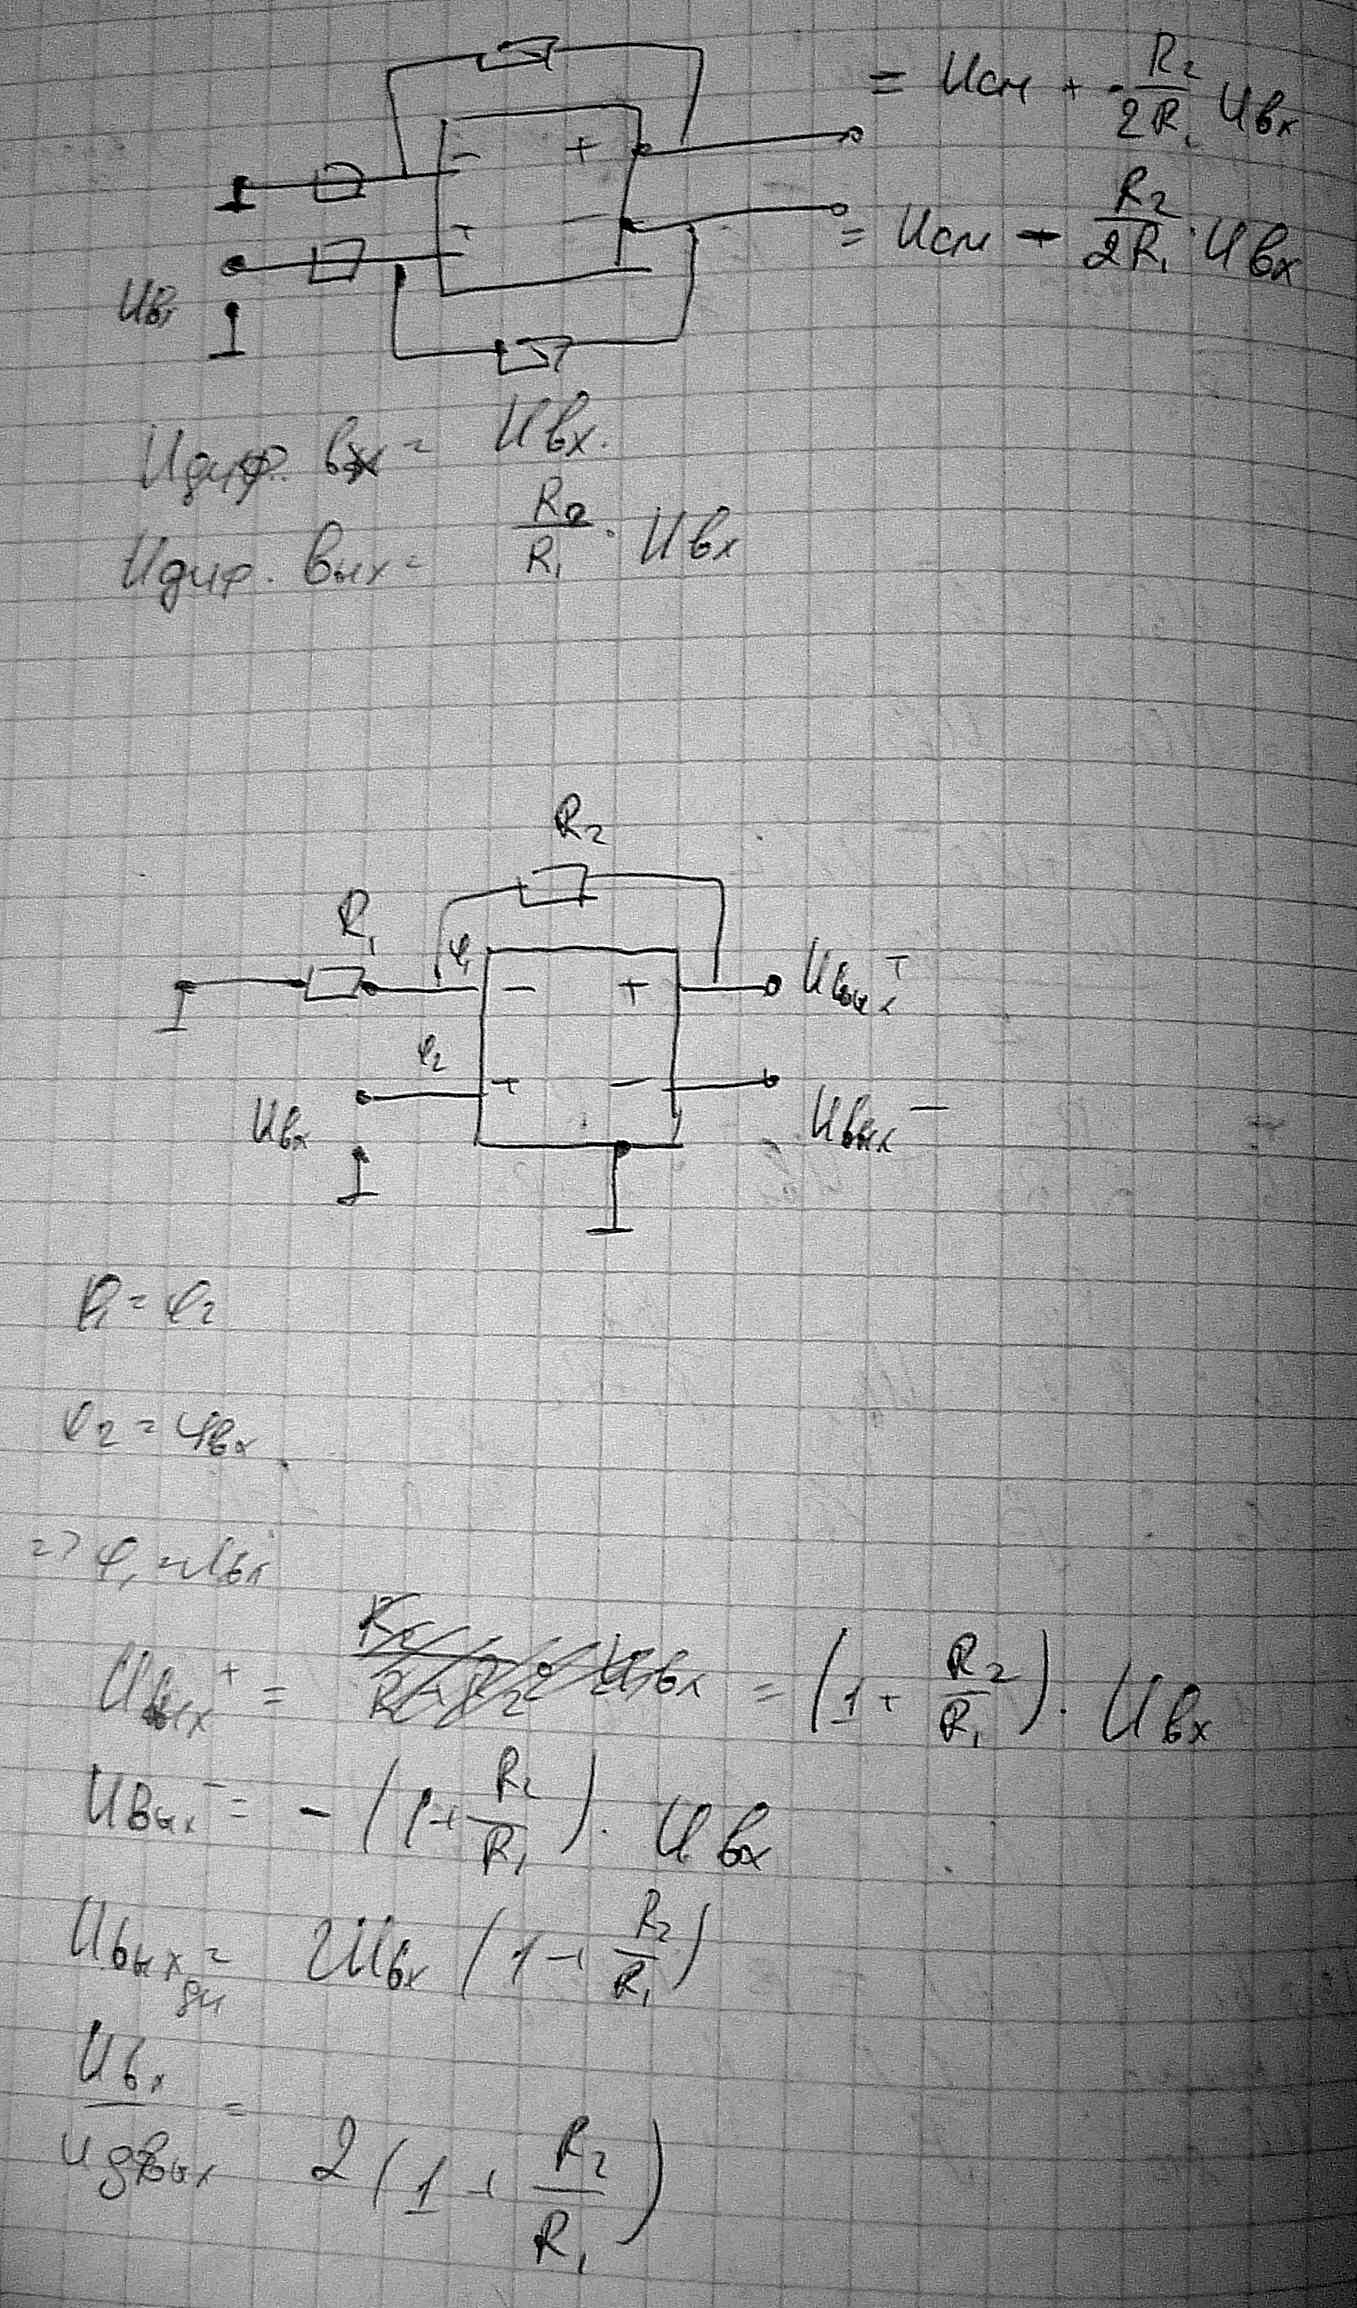 = Uсм + R₂/2R₁ Uвх
- +
+ -
= Uсм - R₂/2R₁ · Uвх
Uдиф. вх = Uвх.
Uдиф. вых = R₂/R₁ · Uвх
R₂
R₁
φ₁
- +
Uвых⁺
φ₂
+ -
Uвх
Uвых⁻
φ₁ = φ₂
φ₂ = Uвх
=> φ₁ = Uвх
Uвых⁺ = = (1 + R₂/R₁) · Uвх
Uвых⁻ = - (1 + R₂/R₁) · Uвх
Uвых = 2Uвх (1 + R₂/R₁)
Uвх/Uдвых = 2 (1 + R₂/R₁)